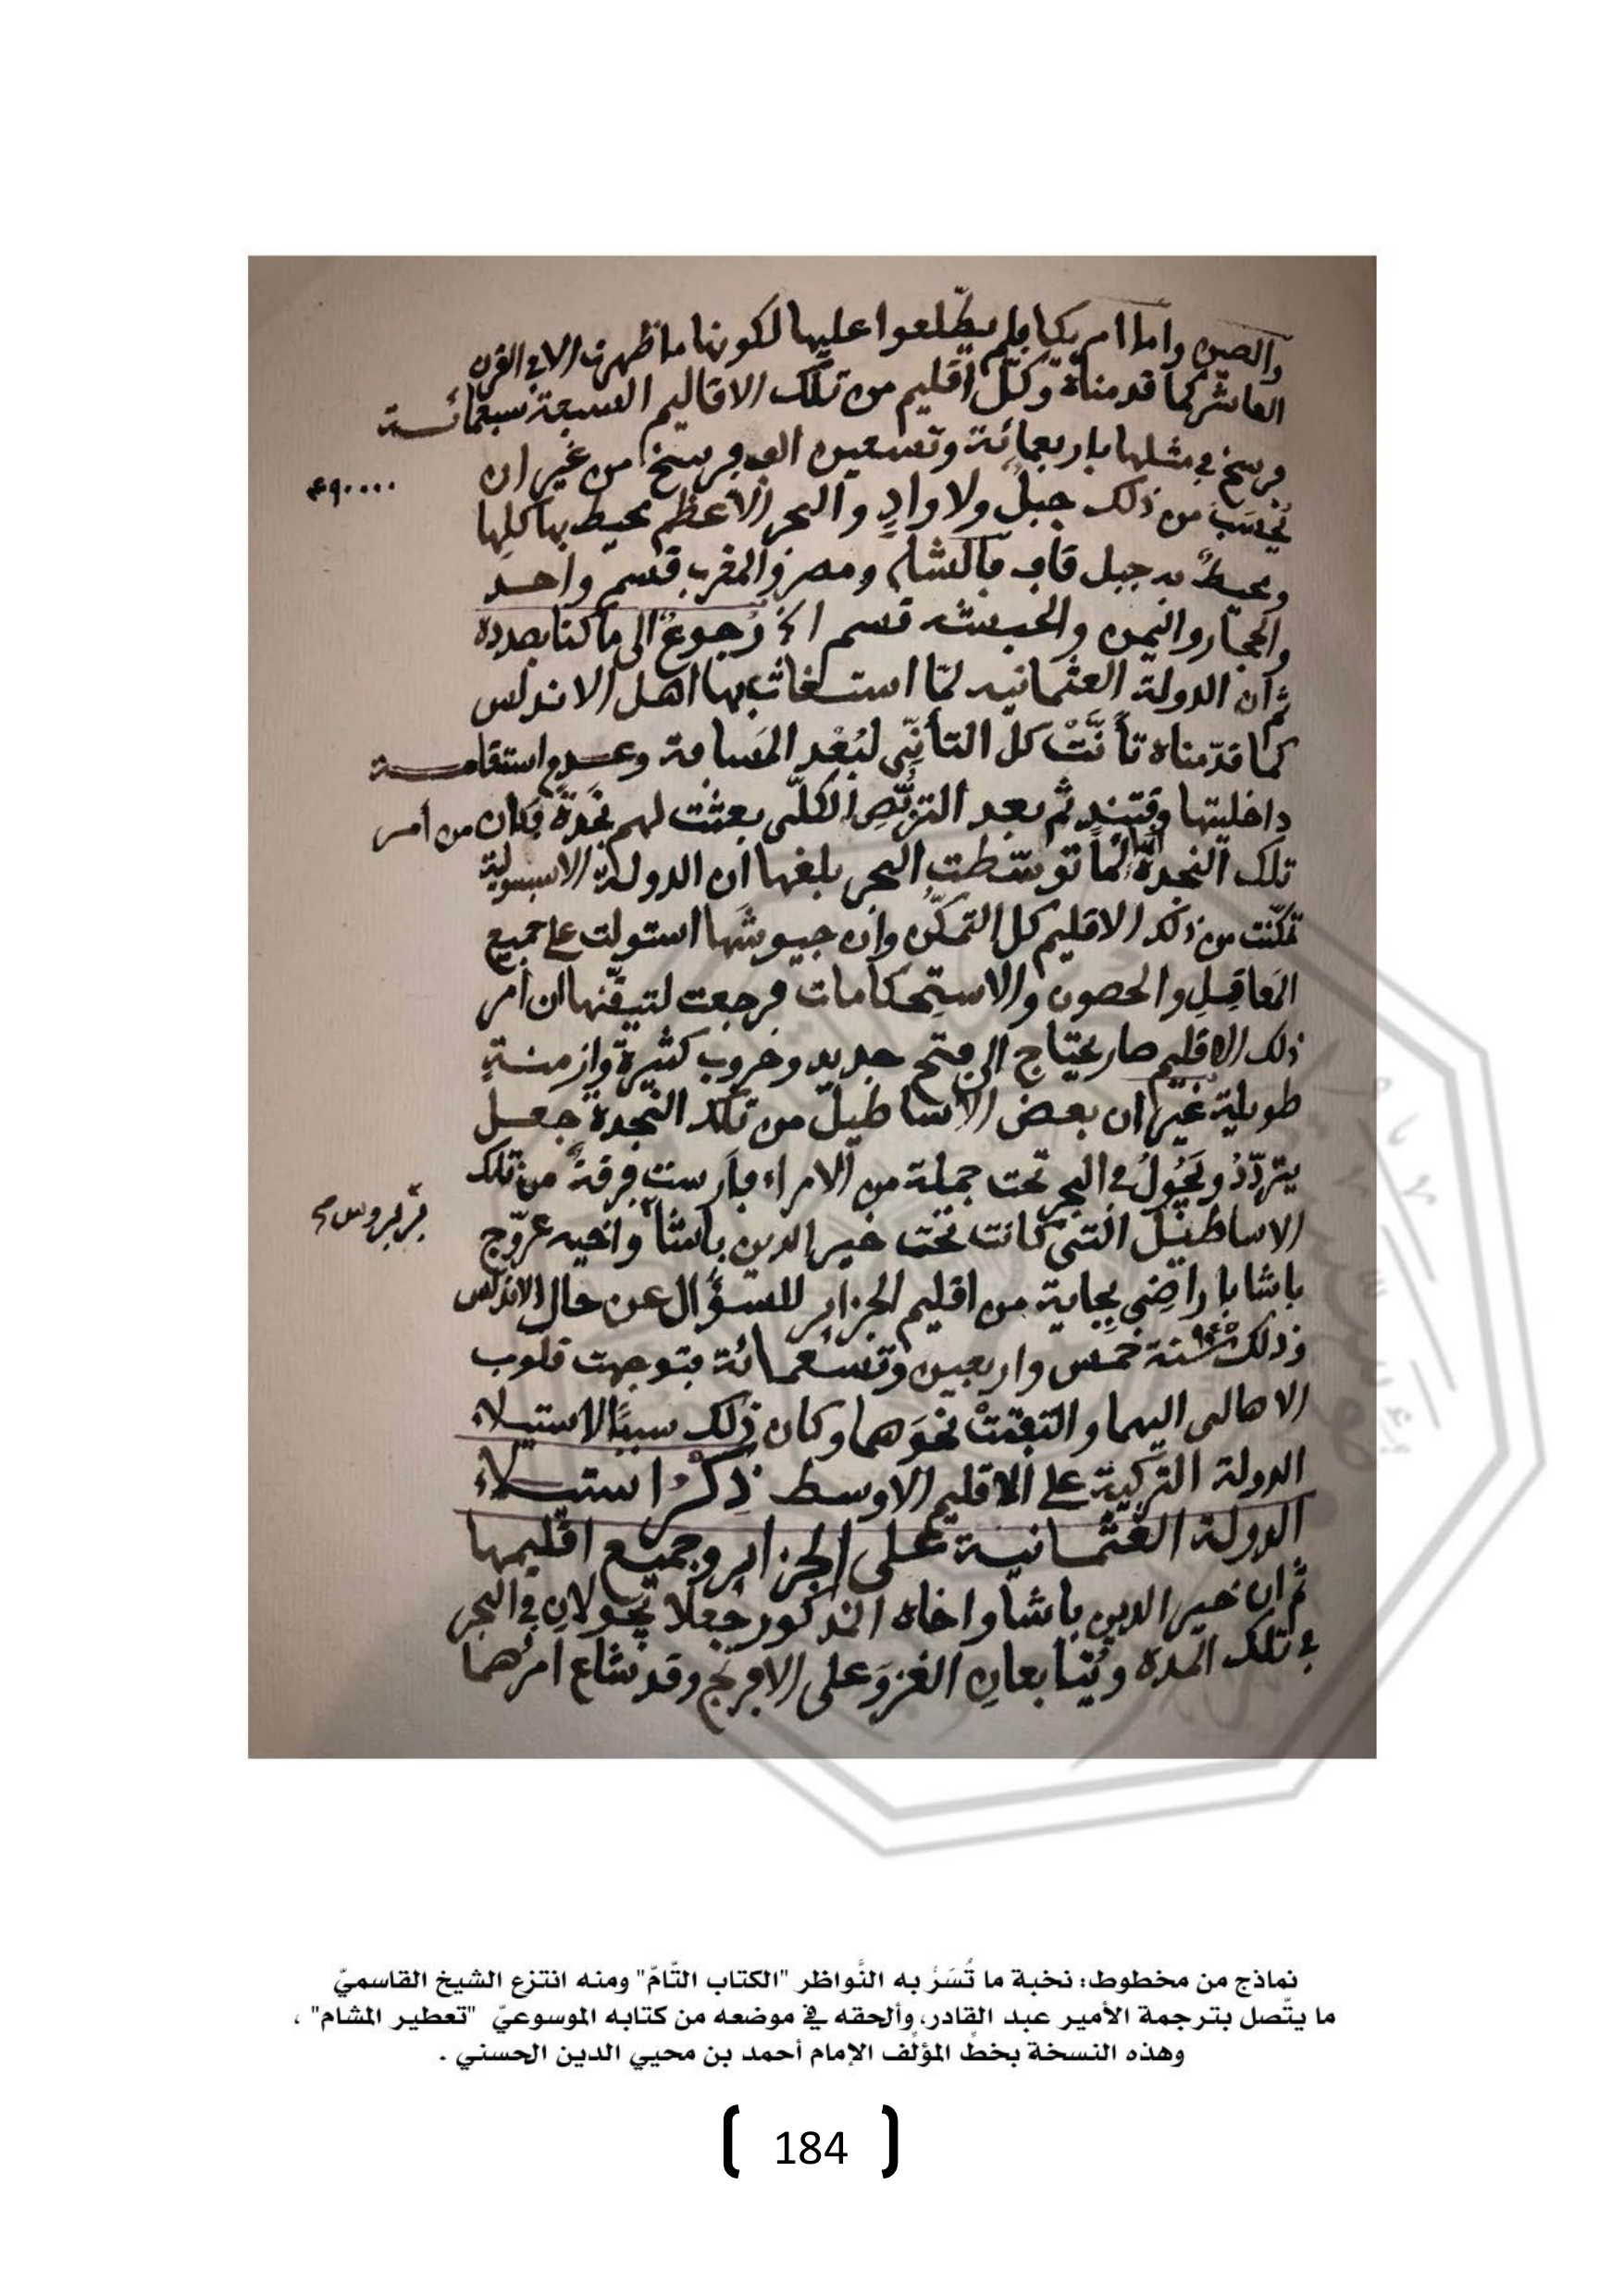 والصين واما امريكيا فلم يطّلعوا عليها لكونها ما ظهرت الا في القرن
العاشر كما قدمناه وكلّ اقليم من تلك الاقاليم السبعة سبعمائــة
فرسخ في مثلها باربعمائة وتسعين الف فرسخ من غير ان
٤٩٠٠٠٠
يُحسَبَ من ذلك جبلٌ ولا وادٍ والبحر الاعظم محيط بها كلِها
ومحيطٌ به جبل قاف فالشام ومصر والمغرب قسم واحد
والحجاز واليمن والحبشه قسم الخ رُجوعٌ الى ما كنا بصدده
ثم ان الدولة العثمانيه لمّا استغاث بها اهل الاندلس
كما قدّمناه تأنَّتْ كلّ التأنّي لبُعْد المَسافة وعدم استقامــة
داخليتها وقتئد ثم بعد التربُّصِ الكلّى بعثت لهم نَجدَةً فكان من أمر
تلك النجدة لمّا توسّطت البحر بلغها ان الدولة الاسبنيولية
تمكّنت من ذلك الاقليم كل التمكّن وان جيوشَها استولت على جميع
المَعاقِلِ والحصون والاستِحكامات فرجعت لتيقّنها ان امر
ذلك الاقليم صار يحتاج الى فتح جديد وحروب كثيرة وازمنــةٍ
طويلة غير ان بعض الاساطيل من تلك النجدة جعــل
يتردّدُ ويَجُولُ في البحر تحت جملة من الامراء فأرست فرقة من تلك
الاساطيل التي كانت تحت خير الدين باشا واخيه عرّوج
بربروس صح
باشا باراضي بجاية من اقليم الجزاير للسؤال عن حال الاندلس
وذلك سنة ٩٤٥ خمس واربعين وتسعمائة فتوجهت قلوب
الاهالى اليهما والتفتتْ نحوَهما وكان ذلك سبباً لاستيلاء
الدولة التركية على الاقليم الاوسط ذِكْرُ استيــلاء
الدولة العثمـانيــة على الجزاير وجميع اقليمها
ثم ان خير الدين باشا واخاه المذكور جعلا يَجُولانِ في البحر
في تلك المدة ويُتابعانِ الغزوَ على الافرنج وقد شاع امرُهما
نماذج من مخطوط: نخبة ما تُسَرُّ به النَّواظر "الكتاب التَّامّ" ومنه انتزع الشيخ القاسميّ
ما يتّصل بترجمة الأمير عبد القادر، وألحقه في موضعه من كتابه الموسوعيّ "تعطير المشام" ،
وهذه النسخة بخطِّ المؤلِّف الإمام أحمد بن محيي الدين الحسني .
184